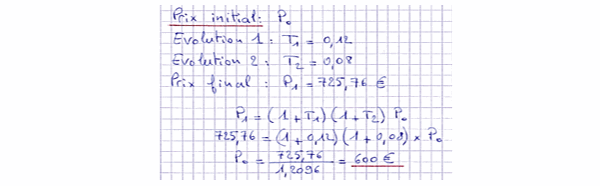 Prix initial: P₀
Evolution 1 : T₁ = 0,12
Evolution 2 : T₂ = 0,08
Prix final : P₁ = 725,76 €
P₁ = (1 + T₁) (1 + T₂) P₀
725,76 = (1 + 0,12) (1 + 0,08) × P₀
P₀ = 725,76 / 1,2096 = 600 €